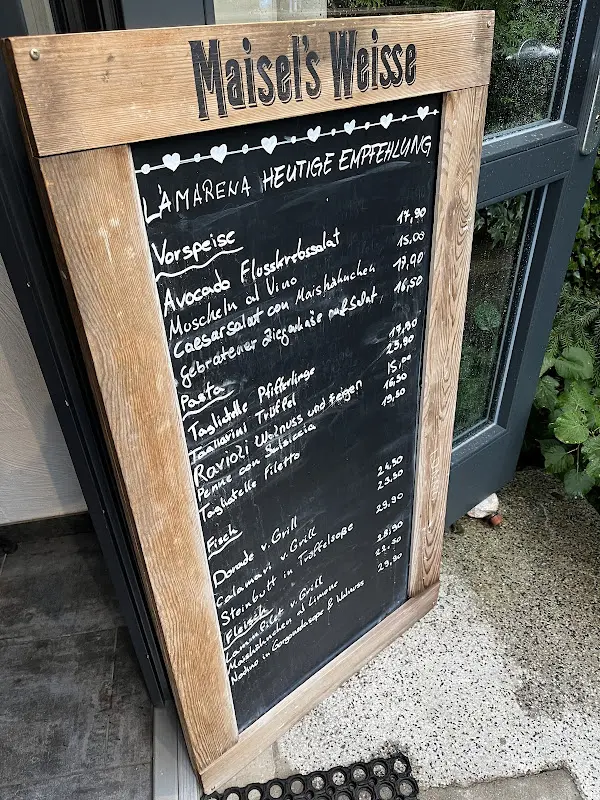 Maisel's Weisse
L'AMARENA HEUTIGE EMPFEHLUNG
Vorspeise
Avocado Flusskrebssalat 17,90
Muscheln al Vino 15.00
Caesarsalat con Maishähnchen 17,90
Gebratener Ziegenkäse auf Salat, 16,50
Pasta
Tagliatelle Pfifferlinge 17,90
Tagliarini Trüffel 23,90
Ravioli Walnuss und Feigen 15,00
Penne con Salsiccia 16,50
Tagliatelle Filetto 19,50
Fisch
Dorade v. Grill 24,50
Calamari v. Grill 23.50
Steinbutt in Trüffelsoße 29,90
Fleisch
Lammfilet v. Grill 28,90
Maishähnchen al Limone 22.50
in Gorgonzolasoße & Walnuss 29,90